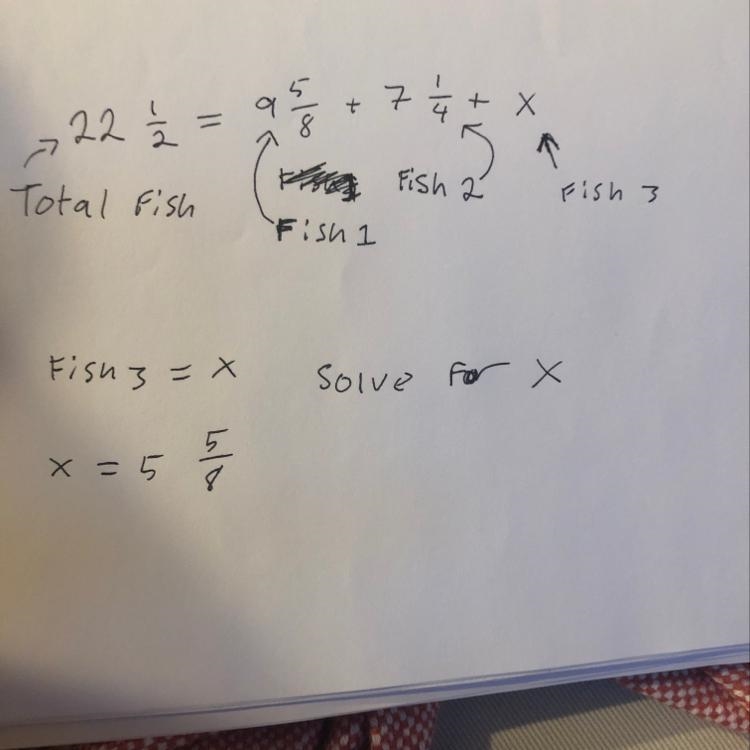 22 1/2 = 9 5/8 + 7 1/4 + x
Total Fish Fish 2 Fish 3
Fish 1
Fish 3 = x Solve For X
x = 5 5/8